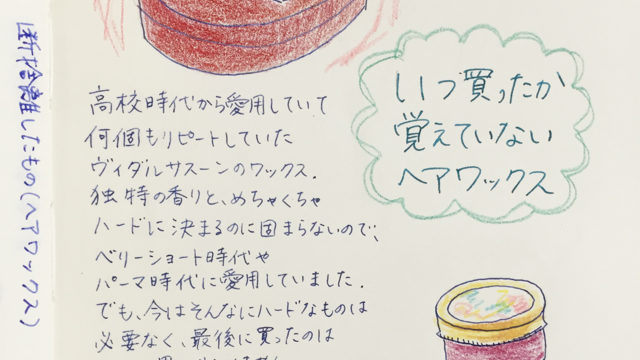 断捨離したもの(ヘアワックス)
いつ買ったか
覚えていない
ヘアワックス
高校時代から愛用していて
何個もリピートしていた
ヴィダルサスーンのワックス.
独特の香りと、めちゃくちゃ
ハードに決まるのに固まらないので、
ベリーショート時代や
パーマ時代に愛用していました.
でも、今はそんなにハードなものは
必要なく、最後に買ったのは